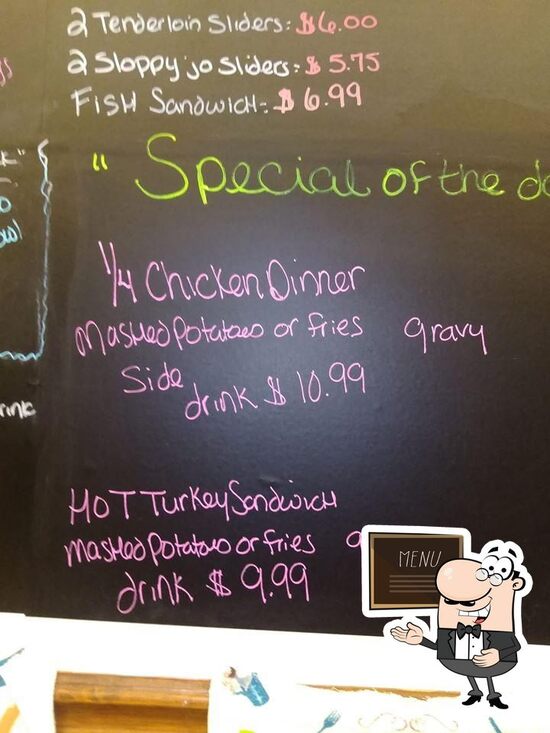 2 Tenderloin Sliders: $6.00
2 Sloppy jo Sliders: $5.75
FISH SANDWICH: $6.99
" Special of the
1/4 Chicken Dinner
Mashed Potatoes or fries gravy
Side
drink $10.99
HOT Turkey Sandwich
Mashed Potatoes or fries
drink $9.99
MENU